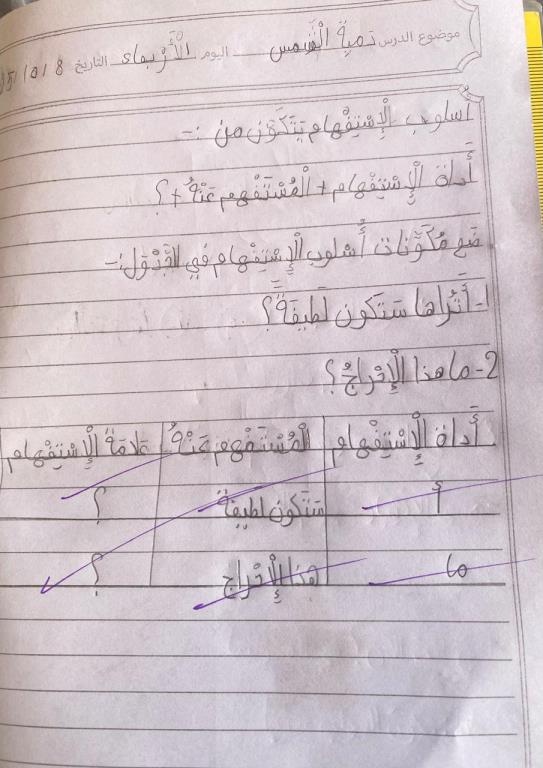 موضوع الدرس دمية الشمس اليوم الأربعاء التاريخ 8/10/
أسلوب الإِسْتِفْهام يَتَكَوَّن من :-
أَداة الإِسْتِفْهام + الْمُسْتَفْهم عَنْهُ + ؟
ضع مُكَوِّنات أُسْلوب الإِسْتِفْهام في الجَدْوَل :-
1- أَتُراها سَتَكون لَطيفَةً؟
2- ما هذا الْإِحْراجُ؟
أَداة الْإِسْتِفْهام الْمُسْتَفْهم عَنْهُ عَلامَةُ الْإِسْتِفْهام
أ سَتَكون لطيفة ؟
ما هذا الْإِحْراج ؟